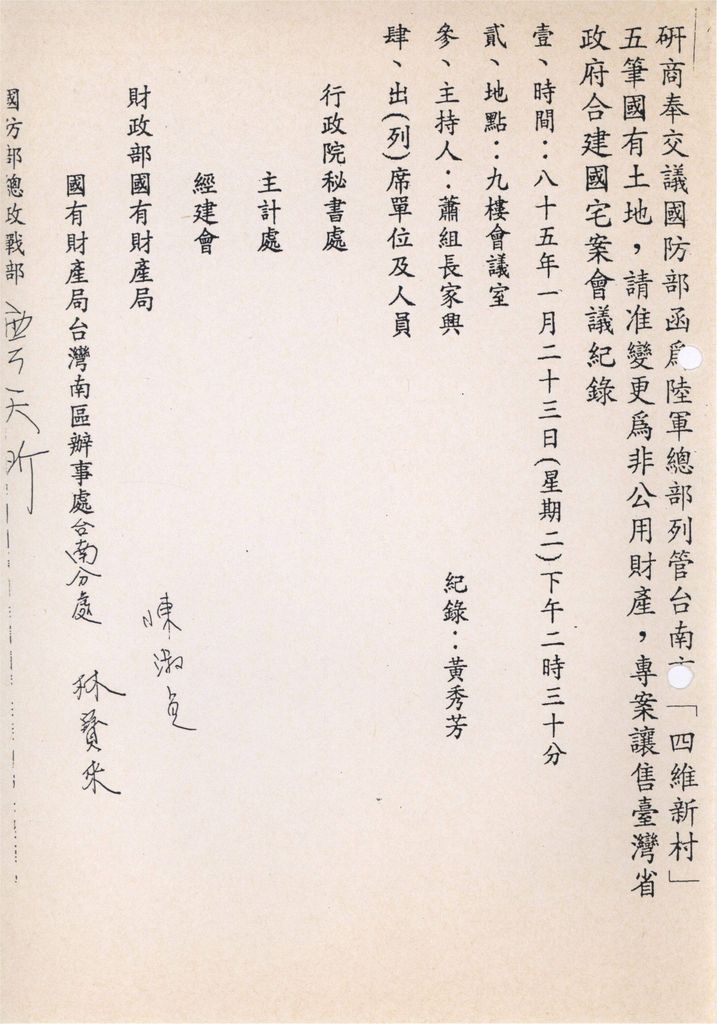 研商奉交議國防部函為陸軍總部列管台南市「四維新村」
五筆國有土地，請准變更為非公用財產，專案讓售臺灣省
政府合建國宅案會議紀錄
壹、時間：八十五年一月二十三日(星期二)下午二時三十分
貳、地點：九樓會議室
參、主持人：蕭組長家興 紀錄：黃秀芳
肆、出(列)席單位及人員
行政院秘書處
主計處
經建會
財政部國有財產局 陳淑貞
國有財產局台灣南區辦事處台南分處 林寶來
國防部總政戰部